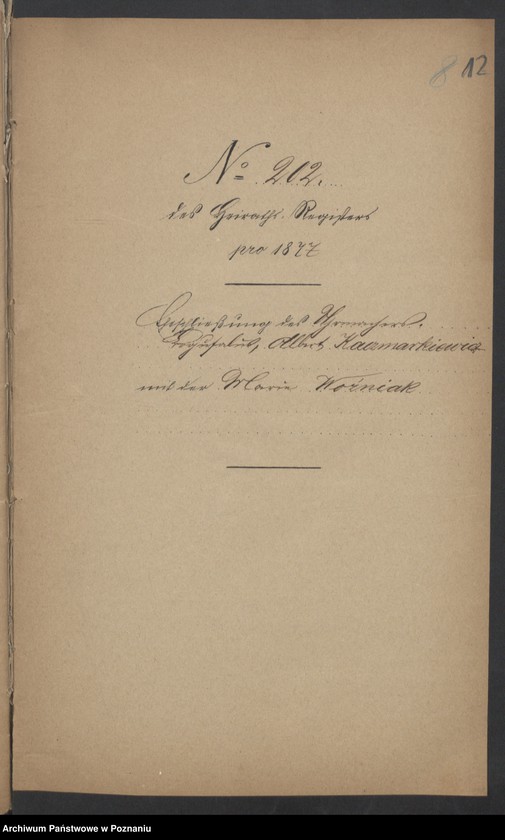 8 12
No 202.
des Heiraths-Registers
pro 1877
Eheschließung des Uhrmachers
Albert Kaczmarkiewicz
mit der Marie Woźniak
Archiwum Państwowe w Poznaniu